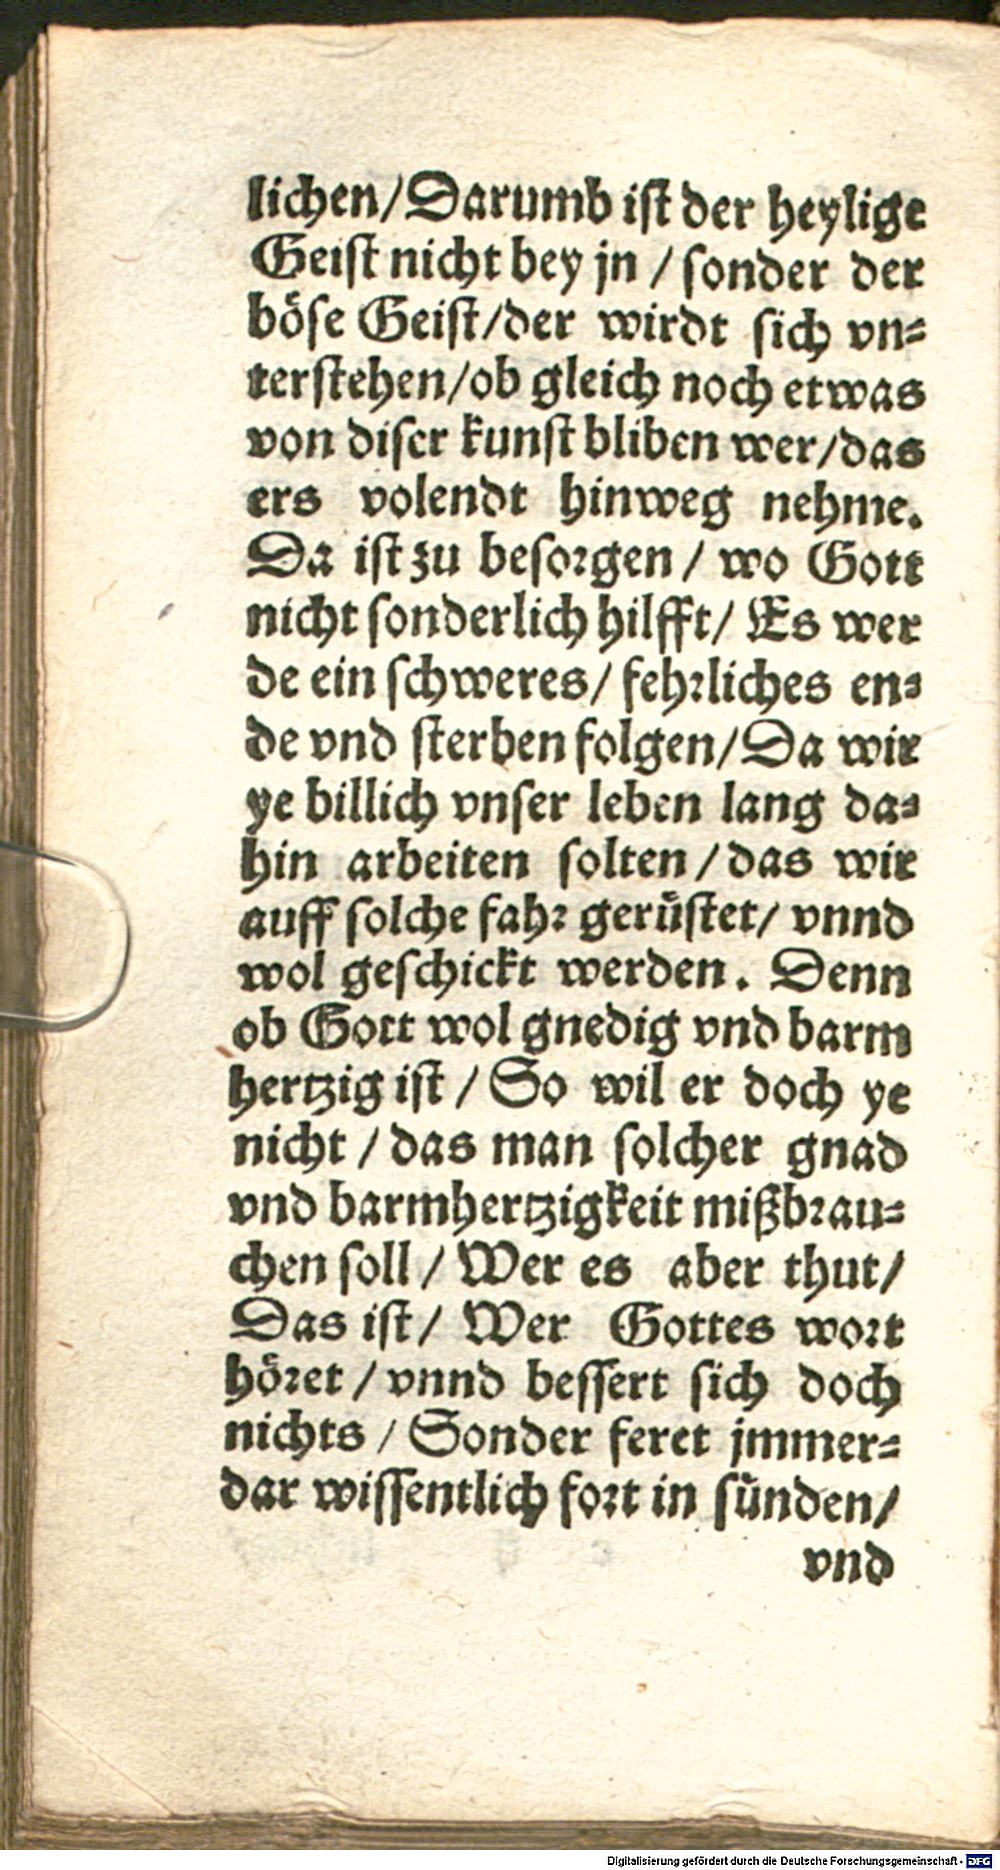 lichen/Darumb ist der heylige
Geist nicht bey jn / sonder der
böse Geist/der wirdt sich vn⸗
terstehen/ob gleich noch etwas
von diser kunst bliben wer/das
ers volendt hinweg nehme.
Da ist zu besorgen / wo Gott
nicht sonderlich hilfft/ Es wer
de ein schweres/ fehrliches en⸗
de vnd sterben folgen/Da wir
ye billich vnser leben lang da⸗
hin arbeiten solten / das wir
auff solche fahr gerüstet/ vnnd
wol geschickt werden. Denn
ob Gott wol gnedig vnd barm
hertzig ist / So wil er doch ye
nicht / das man solcher gnad
vnd barmhertzigkeit mißbrau⸗
chen soll / Wer es aber thut/
Das ist/ Wer Gottes wort
höret / vnnd bessert sich doch
nichts / Sonder feret jmmer⸗
dar wissentlich fort in sünden/
vnd
Digitalisierung gefördert durch die Deutsche Forschungsgemeinschaft - DFG